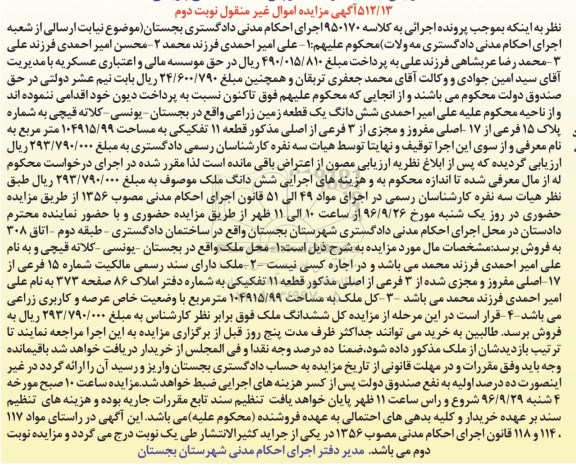 ۵۱۲/۱۳آگهی مزایده اموال غیر منقول نوبت دوم
نظر به اینکه بموجب پرونده اجرائی به کلاسه ۹۵۰۱۷۰اجرای احکام مدنی دادگستری بجستان(موضوع نیابت ارسالی از شعبه
اجرای احکام مدنی دادگستری مه ولات)محکوم علیهم:۱-علی امیر احمدی فرزند محمد ۲-محسن امیر احمدی فرزند علی
۳-محمد رضا عربشاهی فرزند علی به پرداخت مبلغ ۴۹۰/۰۱۵/۸۱۰ ریال در حق موسسه مالی و اعتباری عسکریه با مدیریت
آقای سید امین جوادی و وکالت آقای محمد جعفری تربقان و همچنین مبلغ ۲۴/۶۰۰/۷۹۰ ریال بابت نیم عشر دولتی در حق
صندوق دولت محکوم می باشند و از انجایی که محکوم علیهم فوق تاکنون نسبت به پرداخت دیون خود اقدامی ننموده اند
و از ناحیه محکوم علیه علی امیر احمدی شش دانگ یک قطعه زمین زراعی واقع در بجستان-یونسی-کلاته قیچی به شماره
پلاک ۱۵ فرعی از ۱۷ -اصلی مفروز و مجزی از ۳ فرعی از اصلی مذکور قطعه ۱۱ تفکیکی به مساحت ۱۰۴۹۱۵/۹۹ متر مربع به
نام معرفی و از سوی این اجرا توقیف و نهایتا توسط هیات سه نفره کارشناسان رسمی دادگستری به مبلغ ۲۹۳/۷۹۰/۰۰۰ ریال
ارزیابی گردیده که پس از ابلاغ نظریه ارزیابی مصون از اعتراض باقی مانده است لذا مقرر شده در اجرای درخواست محکوم
له از مال معرفی شده تا اندازه محکوم به و هزینه های اجرایی شش دانگ ملک موصوف به مبلغ ۲۹۳/۷۹۰/۰۰۰ ریال طبق
نظر هیات سه نفره کارشناسان رسمی در اجرای مواد ۴۹ الی ۵۱ قانون اجرای احکام مدنی مصوب ۱۳۵۶ از طریق مزایده
حضوری در روز یک شنبه مورخ ۹۶/۹/۲۶ از ساعت ۱۰ الی ۱۱ ظهر از طریق مزایده حضوری و با حضور نماینده محترم
دادستان در محل اجرای احکام مدنی دادگستری شهرستان بجستان واقع در ساختمان دادگستری - طبقه دوم -اتاق ۳۰۸
به فروش برسد:مشخصات مال مورد مزایده به شرح ذیل است:۱-محل ملک واقع در بجستان -یونسی -کلاته قیچی و به نام
علی امیر احمدی فرزند محمد می باشد و در اجاره کسی نیست -۲-ملک دارای سند رسمی مالکیت شماره ۱۵ فرعی از
۱۷-اصلی مفروز و مجزی شده از ۳ فرعی از اصلی مذکور قطعه ۱۱ تفکیکی به شماره دفتر املاک ۸۶ صفحه ۳۷۳ به نام علی
امیر احمدی فرزند محمد می باشد -۳-کل ملک به مساحت ۱۰۴۹۱۵/۹۹ مترمربع با وضعیت خاص عرصه و کاربری زراعی
می باشد-۴-قرار است در این مرحله از مزایده کل ششدانگ ملک فوق برابر نظر کارشناس به مبلغ ۲۹۳/۷۹۰/۰۰۰ ریال به
فروش برسد. طالبین به خرید می توانند جداکثر ظرف مدت پنج روز قبل از برگزاری مزایده به این اجرا مراجعه نمایند تا
ترتیب بازدیدشان از ملک مذکور داده شود،ضمنا ده درصد وجه نقدا و فی المجلس از خریدار دریافت خواهد شد باقیمانده
وجه باید وفق مقررات و در مهلت قانونی از تاریخ مزایده به حساب دادگستری بجستان واریز و رسید آن را ارائه گردد در غیر
اینصورت ده درصد اولیه به نفع صندوق دولت پس از کسر هزینه های اجرایی ضبط خواهد شد.مزایده ساعت ۱۰ صبح مورخه
۴ شنبه ۹۶/۹/۲۹ شروع و راس ساعت ۱۱ ظهر پایان خواهد یافت تنظیم سند تابع مقررات جاریه بوده و هزینه های تنظیم
سند بر عهده خریدار و کلیه بدهی های احتمالی به عهده فروشنده (محکوم علیه)می باشد. این آگهی در راستای مواد ۱۱۷
، ۱۱۴ و ۱۱۸ قانون اجرای احکام مدنی مصوب ۱۳۵۶ در یکی از جراید کثیرالانتشار طی یک نوبت درج می گردد و مزایده نوبت
دوم می باشد. مدیر دفتر اجرای احکام مدنی شهرستان بجستان